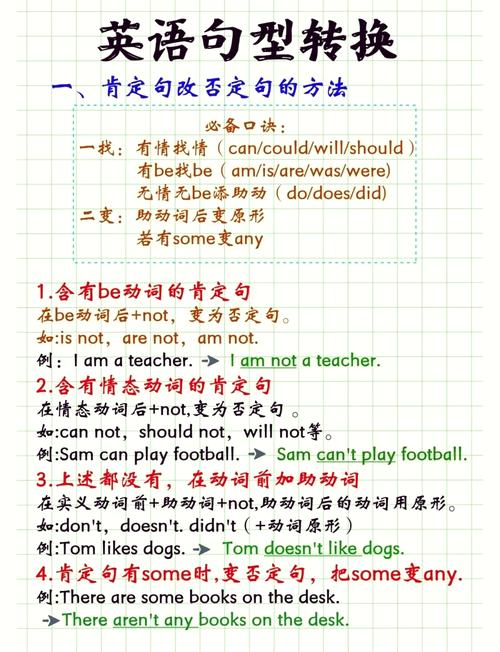 英语句型转换
一、肯定句改否定句的方法
必备口诀:
一找: 有情找情 (can/could/will/should)
有be找be (am/is/are/was/were)
无情无be添助动 (do/does/did)
二变: 助动词后变原形
若有some变any
1.含有be动词的肯定句
在be动词后+not, 变为否定句。
如:is not, are not, am not.
例: I am a teacher. → I am not a teacher.
2.含有情态动词的肯定句
在情态动词后+not,变为否定句 。
如:can not, should not, will not等。
例:Sam can play football. → Sam can't play football.
3.上述都没有, 在动词前加助动词
在实义动词前+助动词+not,助动词后的动词用原形。
如:don't, doesn't. didn't (+动词原形)
例:Tom likes dogs. → Tom doesn't like dogs.
4.肯定句有some时,变否定句, 把some变any.
例:There are some books on the desk.
→There aren't any books on the desk.